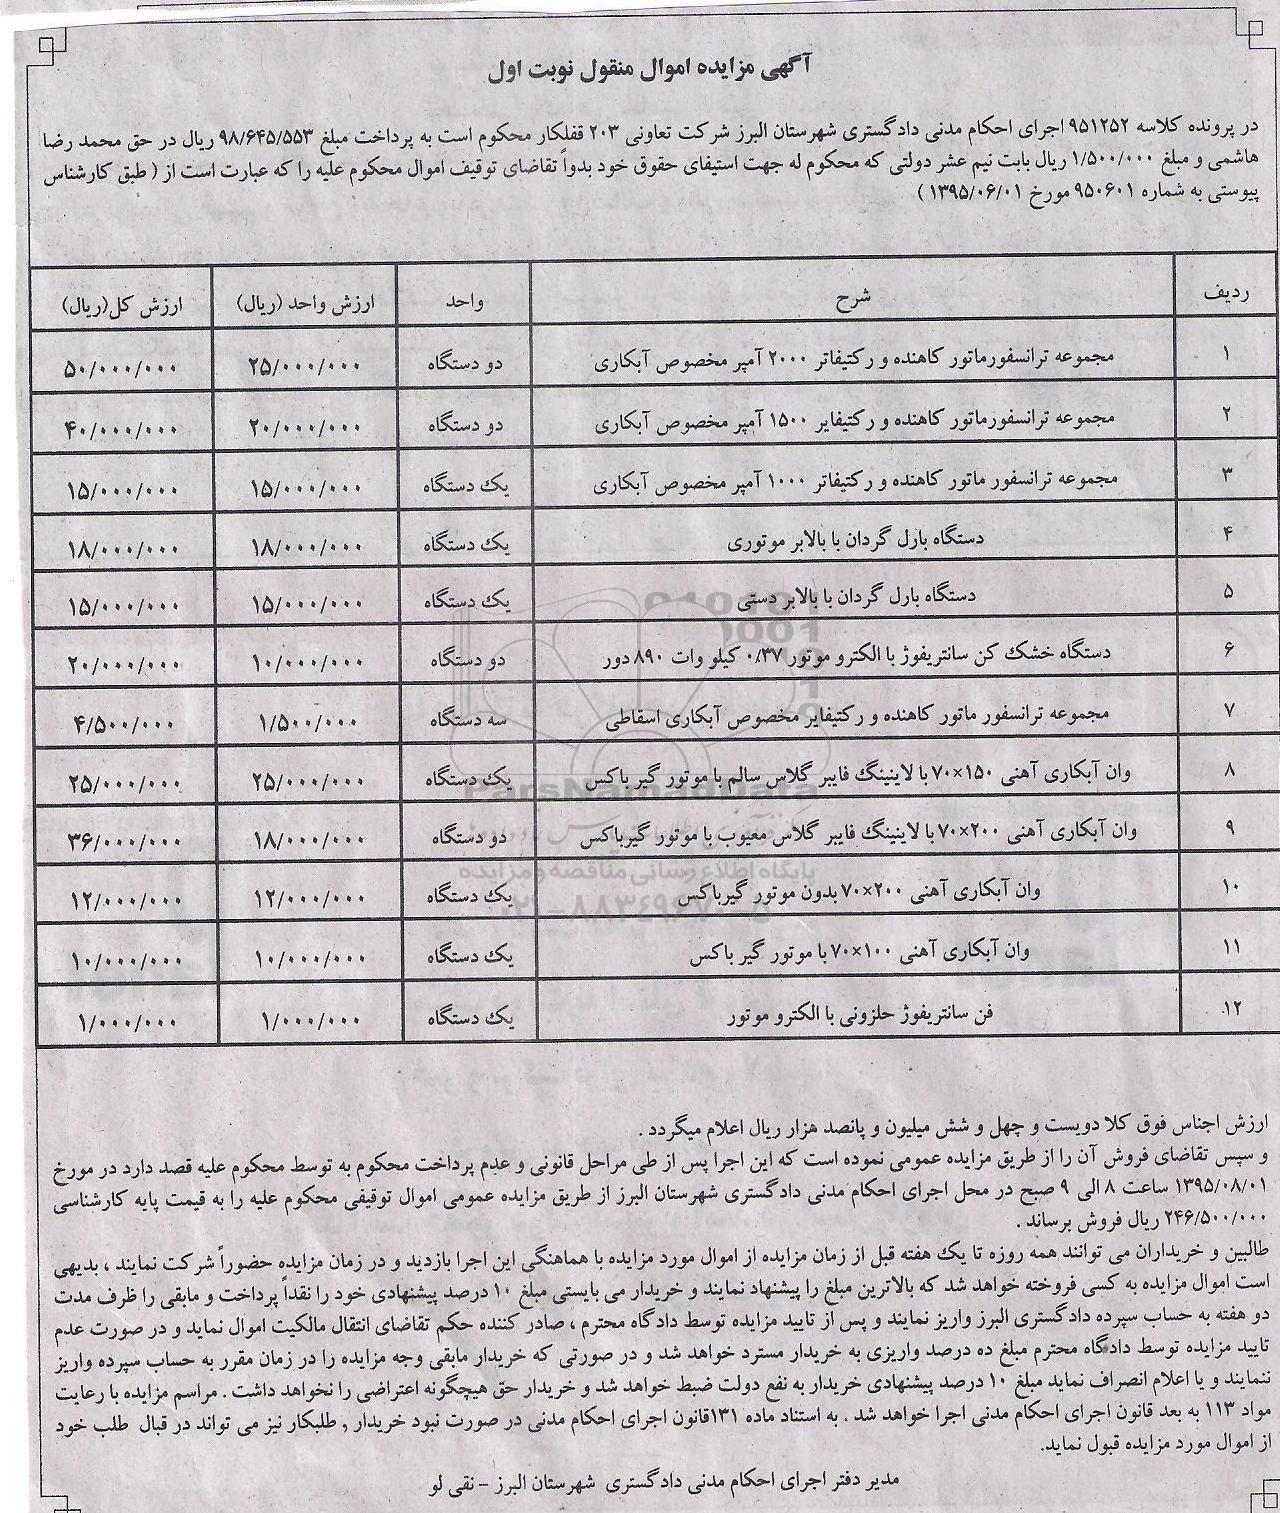 آگهی مزایده اموال منقول نوبت اول
در پرونده کلاسه ۹۵۱۲۵۲ اجرای احکام مدنی دادگستری شهرستان البرز شرکت تعاونی ۲۰۳ قفلکار محکوم است به پرداخت مبلغ ۹۸/۶۴۵/۵۵۳ ریال در حق محمد رضا
هاشمی و مبلغ ۱/۵۰۰/۰۰۰ ریال بابت نیم عشر دولتی که محکوم له جهت استیفای حقوق خود بدواً تقاضای توقیف اموال محکوم علیه را که عبارت است از ( طبق کارشناس
پیوستی به شماره ۹۵۰۶۰۱ مورخ ۱۳۹۵/۰۶/۰۱ )
ردیف شرح واحد ارزش واحد (ریال) ارزش کل(ریال)
۱ مجموعه ترانسفورماتور کاهنده و رکتیفاتر ۲۰۰۰ آمپر مخصوص آبکاری دو دستگاه ۲۵/۰۰۰/۰۰۰ ۵۰/۰۰۰/۰۰۰
۲ مجموعه ترانسفورماتور کاهنده و رکتیفایر ۱۵۰۰ آمپر مخصوص آبکاری دو دستگاه ۲۰/۰۰۰/۰۰۰ ۴۰/۰۰۰/۰۰۰
۳ مجموعه ترانسفور ماتور کاهنده و رکتیفاتر ۱۰۰۰ آمپر مخصوص آبکاری یک دستگاه ۱۵/۰۰۰/۰۰۰ ۱۵/۰۰۰/۰۰۰
۴ دستگاه بارل گردان با بالابر موتوری یک دستگاه ۱۸/۰۰۰/۰۰۰ ۱۸/۰۰۰/۰۰۰
۵ دستگاه بارل گردان با بالابر دستی یک دستگاه ۱۵/۰۰۰/۰۰۰ ۱۵/۰۰۰/۰۰۰
۶ دستگاه خشک کن سانتریفوژ با الکترو موتور ۰/۳۷ کیلو وات ۸۹۰ دور دو دستگاه ۱۰/۰۰۰/۰۰۰ ۲۰/۰۰۰/۰۰۰
۷ مجموعه ترانسفور ماتور کاهنده و رکتیفایر مخصوص آبکاری اسقاطی سه دستگاه ۱/۵۰۰/۰۰۰ ۴/۵۰۰/۰۰۰
۸ وان آبکاری آهنی ۱۵۰×۷۰ با لاینینگ فایبر گلاس سالم با موتور گیر باکس یک دستگاه ۲۵/۰۰۰/۰۰۰ ۲۵/۰۰۰/۰۰۰
۹ وان آبکاری آهنی ۲۰۰×۷۰ با لاینینگ فایبر گلاس معیوب با موتور گیرباکس دو دستگاه ۱۸/۰۰۰/۰۰۰ ۳۶/۰۰۰/۰۰۰
۱۰ وان آبکاری آهنی ۲۰۰×۷۰ بدون موتور گیرباکس یک دستگاه ۱۲/۰۰۰/۰۰۰ ۱۲/۰۰۰/۰۰۰
۱۱ وان آبکاری آهنی ۱۰۰×۷۰ با موتور گیر باکس یک دستگاه ۱۰/۰۰۰/۰۰۰ ۱۰/۰۰۰/۰۰۰
۱۲ فن سانتریفوژ حلزونی با الکترو موتور یک دستگاه ۱/۰۰۰/۰۰۰ ۱/۰۰۰/۰۰۰
ParsNamadData
پایگاه اطلاع رسانی مناقصه و مزایده
ارزش اجناس فوق کلا دویست و چهل و شش میلیون و پانصد هزار ریال اعلام میگردد .
و سپس تقاضای فروش آن را از طریق مزایده عمومی نموده است که این اجرا پس از طی مراحل قانونی و عدم پرداخت محکوم به توسط محکوم علیه قصد دارد در مورخ
۱۳۹۵/۰۸/۰۱ ساعت ۸ الی ۹ صبح در محل اجرای احکام مدنی دادگستری شهرستان البرز از طریق مزایده عمومی اموال توقیفی محکوم علیه را به قیمت پایه کارشناسی
۲۴۶/۵۰۰/۰۰۰ ریال فروش برساند .
طالبین و خریداران می توانند همه روزه تا یک هفته قبل از زمان مزایده از اموال مورد مزایده با هماهنگی این اجرا بازدید و در زمان مزایده حضوراً شرکت نمایند ، بدیهی
است اموال مزایده به کسی فروخته خواهد شد که بالاترین مبلغ را پیشنهاد نمایند و خریدار می بایستی مبلغ ۱۰ درصد پیشنهادی خود را نقداً پرداخت و مابقی را ظرف مدت
دو هفته به حساب سپرده دادگستری البرز واریز نمایند و پس از تایید مزایده توسط دادگاه محترم ، صادر کننده حکم تقاضای انتقال مالکیت اموال نماید و در صورت عدم
تایید مزایده توسط دادگاه محترم مبلغ ده درصد واریزی به خریدار مسترد خواهد شد و در صورتی که خریدار مابقی وجه مزایده را در زمان مقرر به حساب سپرده واریز
ننمایند و یا اعلام انصراف نماید مبلغ ۱۰ درصد پیشنهادی خریدار به نفع دولت ضبط خواهد شد و خریدار حق هیچگونه اعتراضی را نخواهد داشت . مراسم مزایده با رعایت
مواد ۱۱۳ به بعد قانون اجرای احکام مدنی اجرا خواهد شد . به استناد ماده ۱۳۱قانون اجرای احکام مدنی در صورت نبود خریدار , طلبکار نیز می تواند در قبال طلب خود
از اموال مورد مزایده قبول نماید.
مدیر دفتر اجرای احکام مدنی دادگستری شهرستان البرز – نقی لو